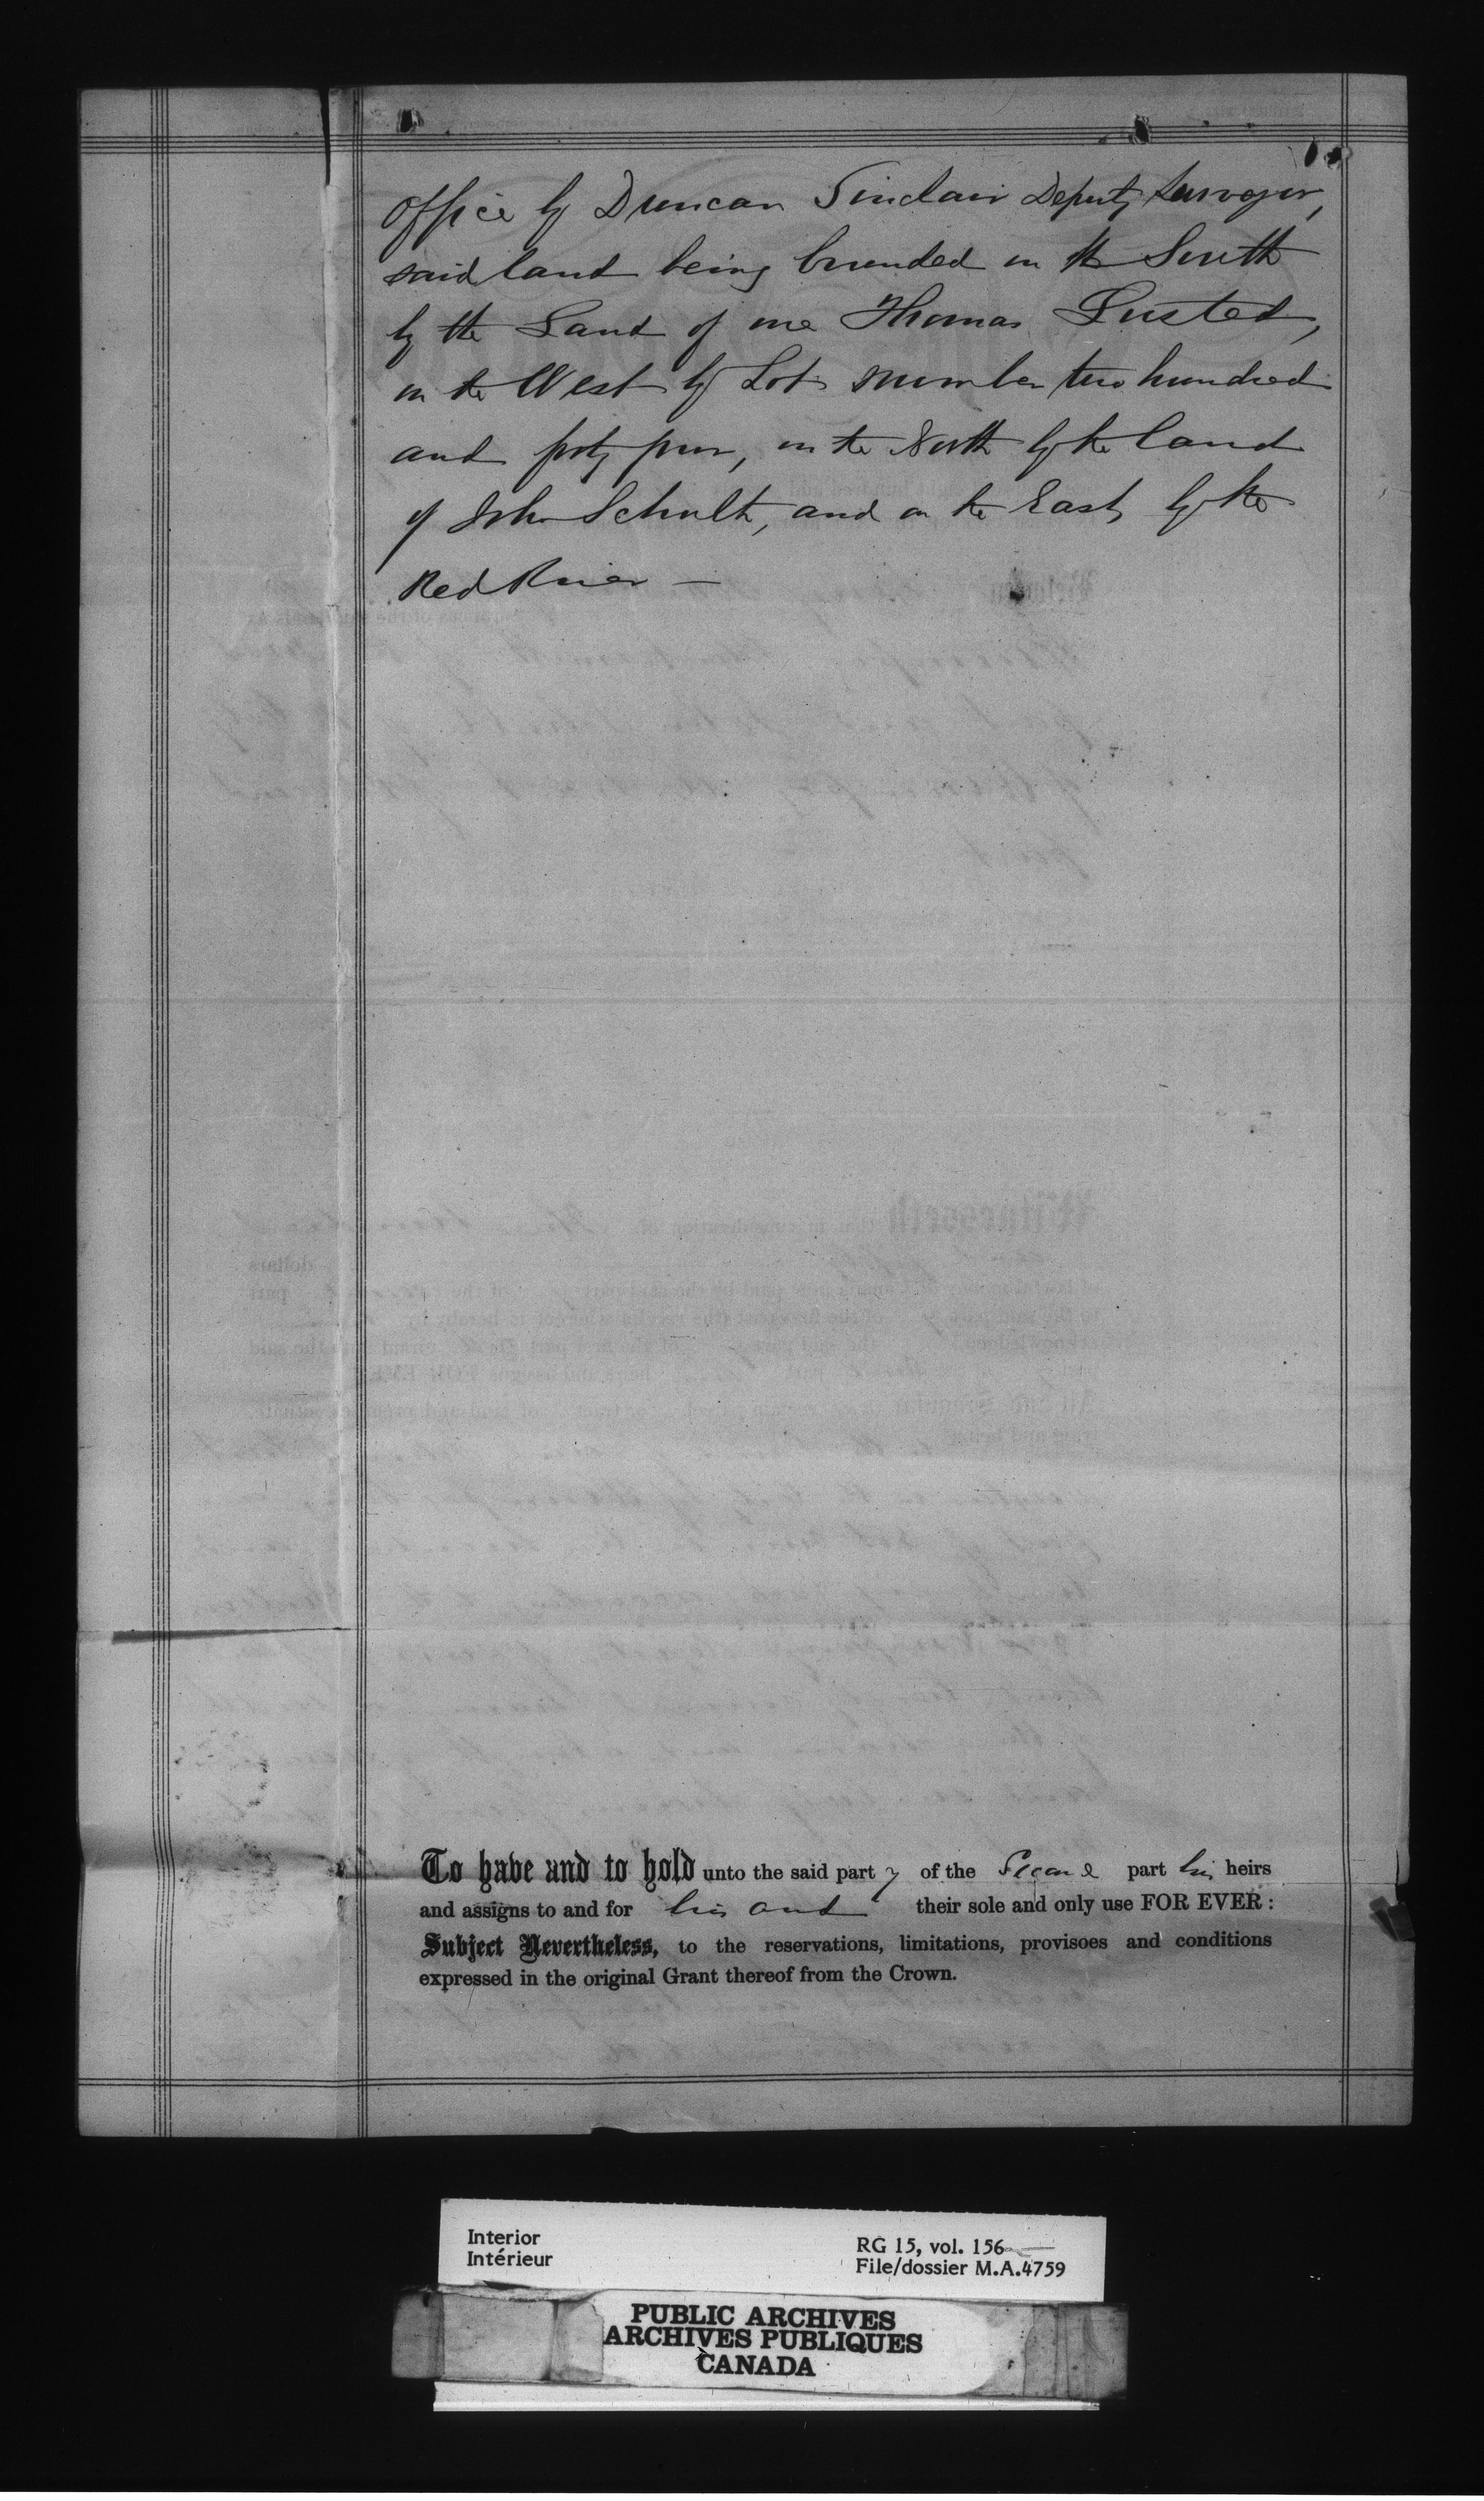 Office by Duncan Sinclair Deputy Surveyor,
said land being bounded on the South
by the Land of one Thomas Lusted,
on the West by Lot number two hundred
and forty four, on the North by the land
of John Schultz, and on the East by the
Red River —
To have and to hold unto the said party of the Second part his heirs
and assigns to and for his and their sole and only use FOR EVER:
Subject Nevertheless, to the reservations, limitations, provisoes and conditions
expressed in the original Grant thereof from the Crown.
Interior
Intérieur
RG 15, vol. 156
File/dossier M.A.4759
PUBLIC ARCHIVES
ARCHIVES PUBLIQUES
CANADA